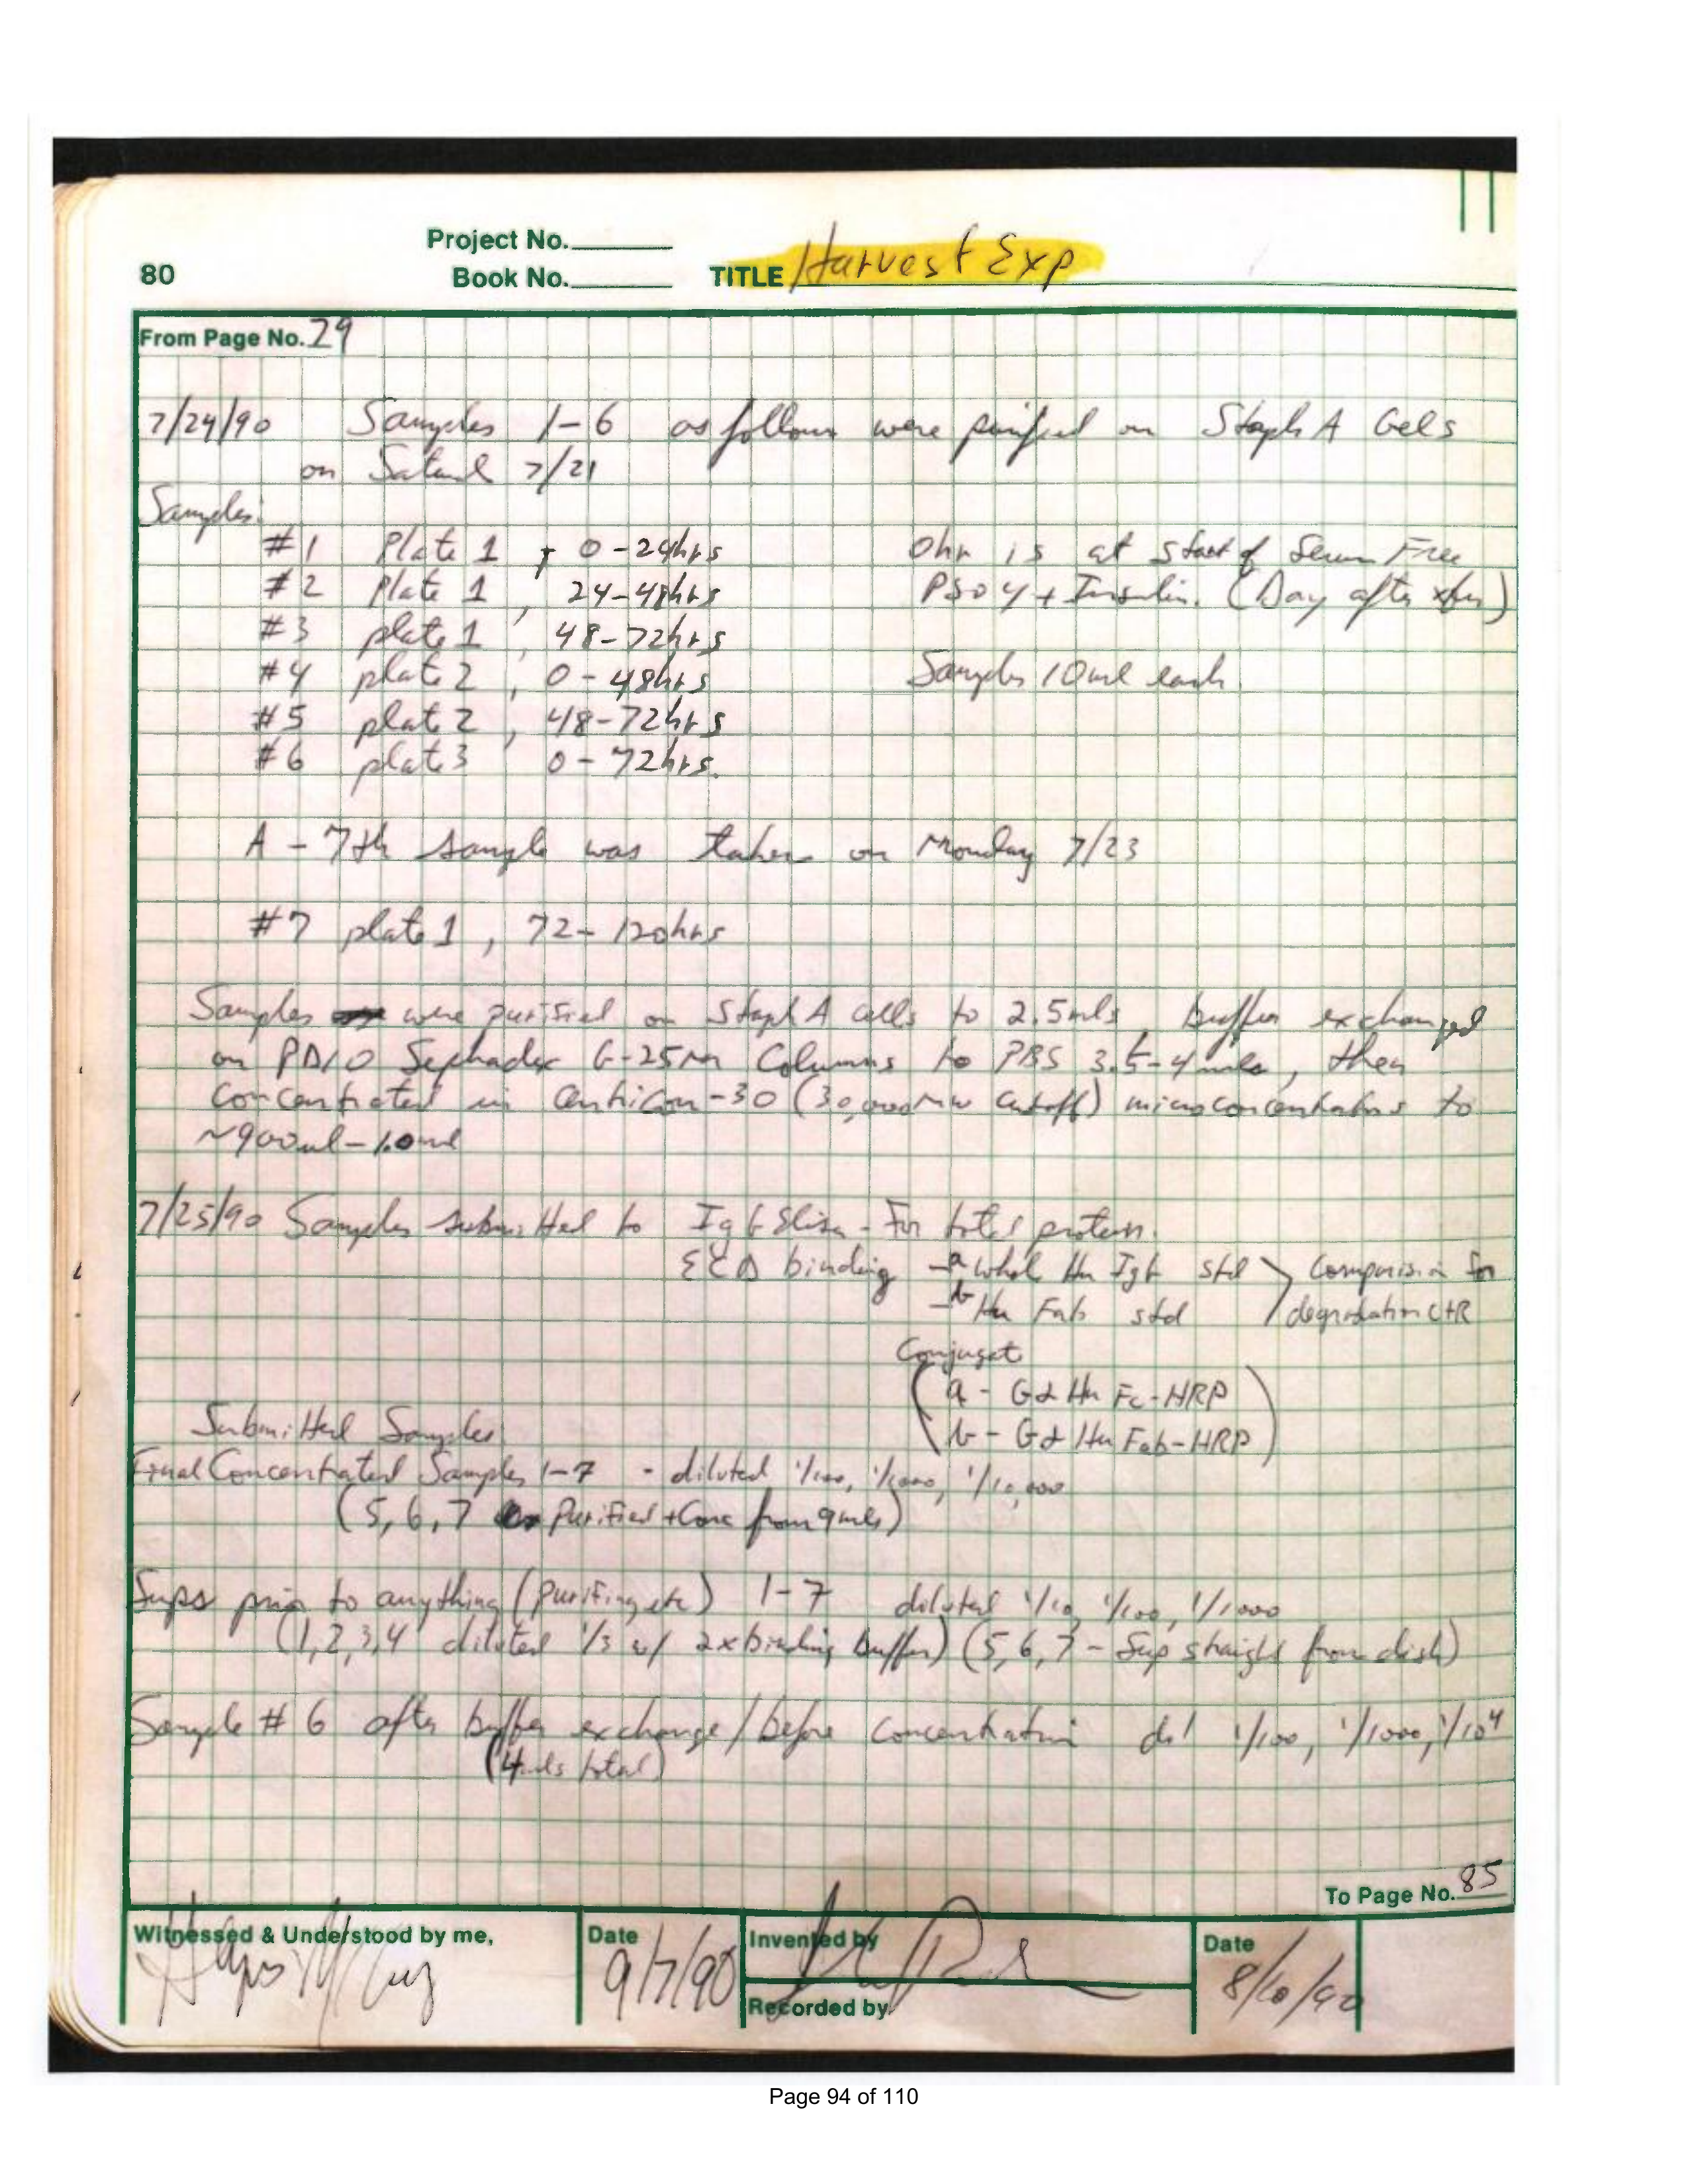 Project No.
80 Book No. TITLE Harvest Exp
From Page No. 29
7/24/90 Samples 1-6 as follows were purified on Staph A Cels
on 7/21
Samples:
#1 Plate 1, 0-24hrs 0hr is at start of Serum Free
#2 Plate 1, 24-48hrs PS04 + Insulin. (Day after xfer)
#3 plate 1, 48-72hrs
#4 plate 2, 0-48hrs Samples 10ml each.
#5 plate 2, 48-72hrs
#6 plate 3 0-72hrs.
A - 7th sample was taken on Monday 7/23
#7 plate 1, 72-120hrs
Samples were purified on Staph A cells to 2.5mls, buffer exchanged
on PD10 Sephadex G-25M Columns to PBS 3.5-4mls, then
Concentrated in Centricon-30 (30,000MW cutoff) microconcentrators to
~900ul-1.0ml
7/25/90 Samples submitted to IgG Elisa - For total protein.
ECD binding - a whole Hu IgG std > Comparison for
- b Hu Fab std / degradation CtR
Conjugate
(a - Gα Hu Fc-HRP)
(b - Gα Hu Fab-HRP)
Submitted Samples
Final Concentrated Samples 1-7 - diluted 1/100, 1/1000, 1/10,000
(5, 6, 7 Purified + Conc from 9mls)
Sups prior to anything (purifing etc) 1-7 diluted 1/10, 1/100, 1/1000
(1,2,3,4 diluted 1/3 w/ 2x binding buffer) (5,6,7 - Sup straight from dish)
Sample #6 after buffer exchange/before concentration dil 1/100, 1/1000, 1/10⁴
(4mls total)
To Page No. 85
Witnessed & Understood by me, Date Invented by Date
9/7/90 8/10/90
Recorded by
Page 94 of 110